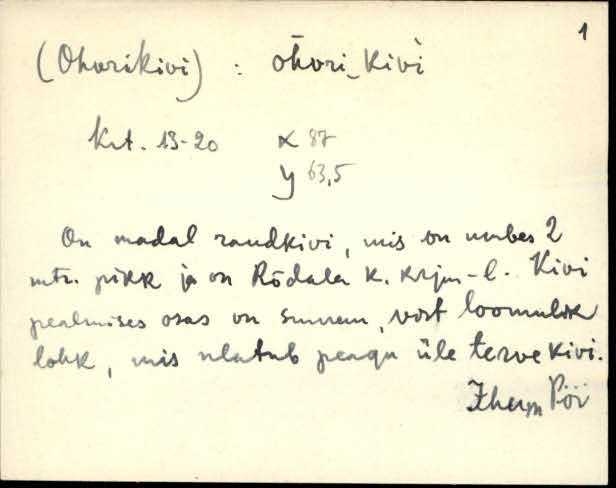 1
(Ohvrikivi) : òhvri_kivì
Krt. 13-20 x 87
y 63,5
On madal raudkivi, mis on umbes 2
mtr. pikk ja on Rõdala k. krjm-l. Kivi
pealmises osas on suurem, vist loomulik
lohk, mis ulatub peagu üle terve kivi.